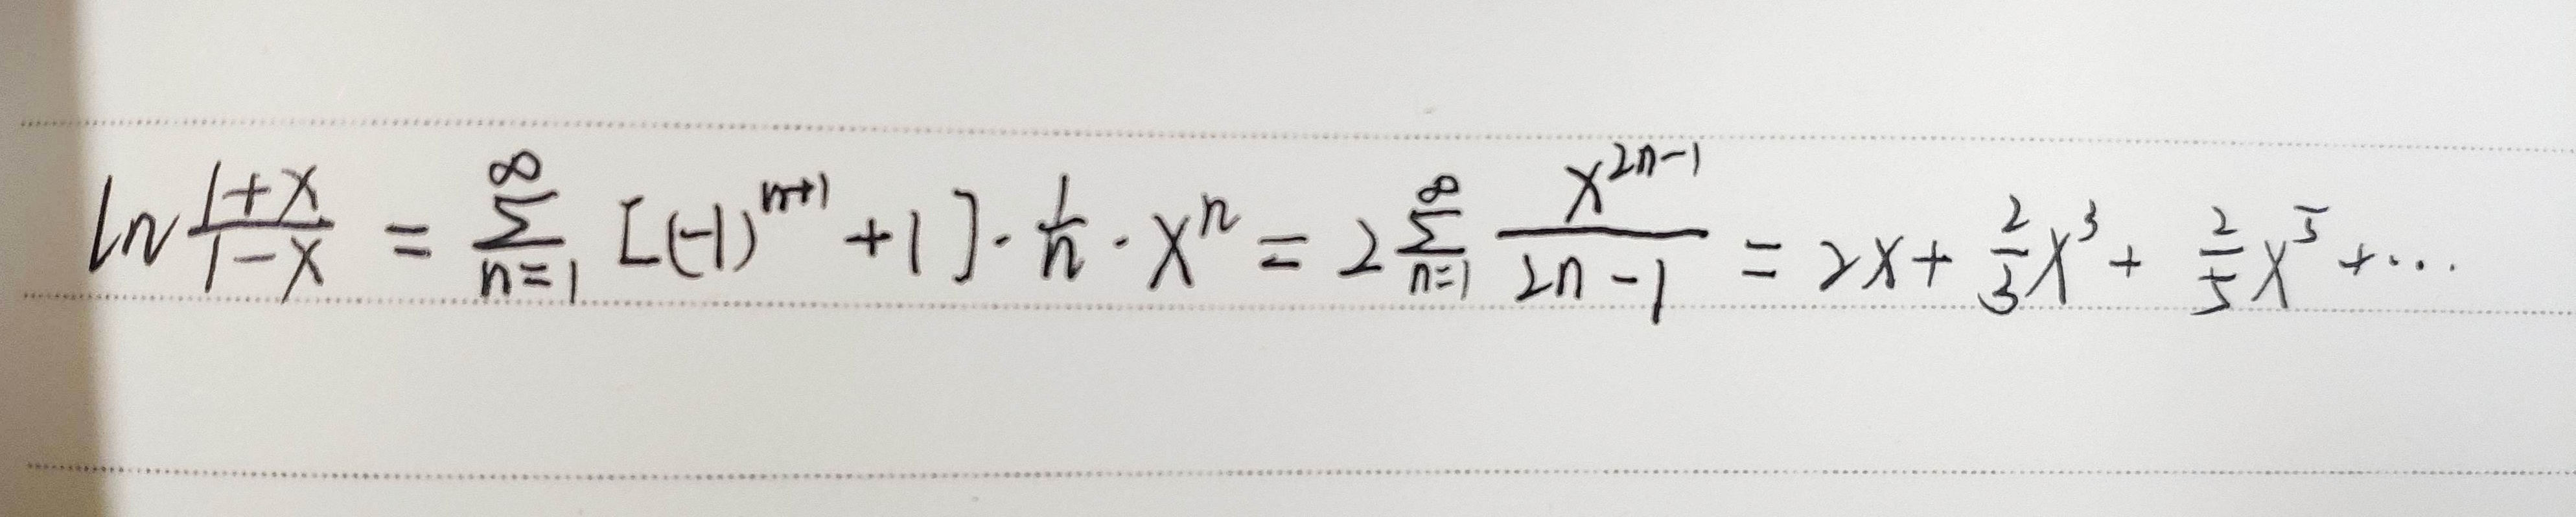 ln\frac{1+x}{1-x} = \sum_{n=1}^{\infty} [(-1)^{n+1}+1]·\frac{1}{n}·x^{n} = 2\sum_{n=1}^{\infty} \frac{x^{2n-1}}{2n-1} = 2x+\frac{2}{3}x^{3}+\frac{2}{5}x^{5}+···